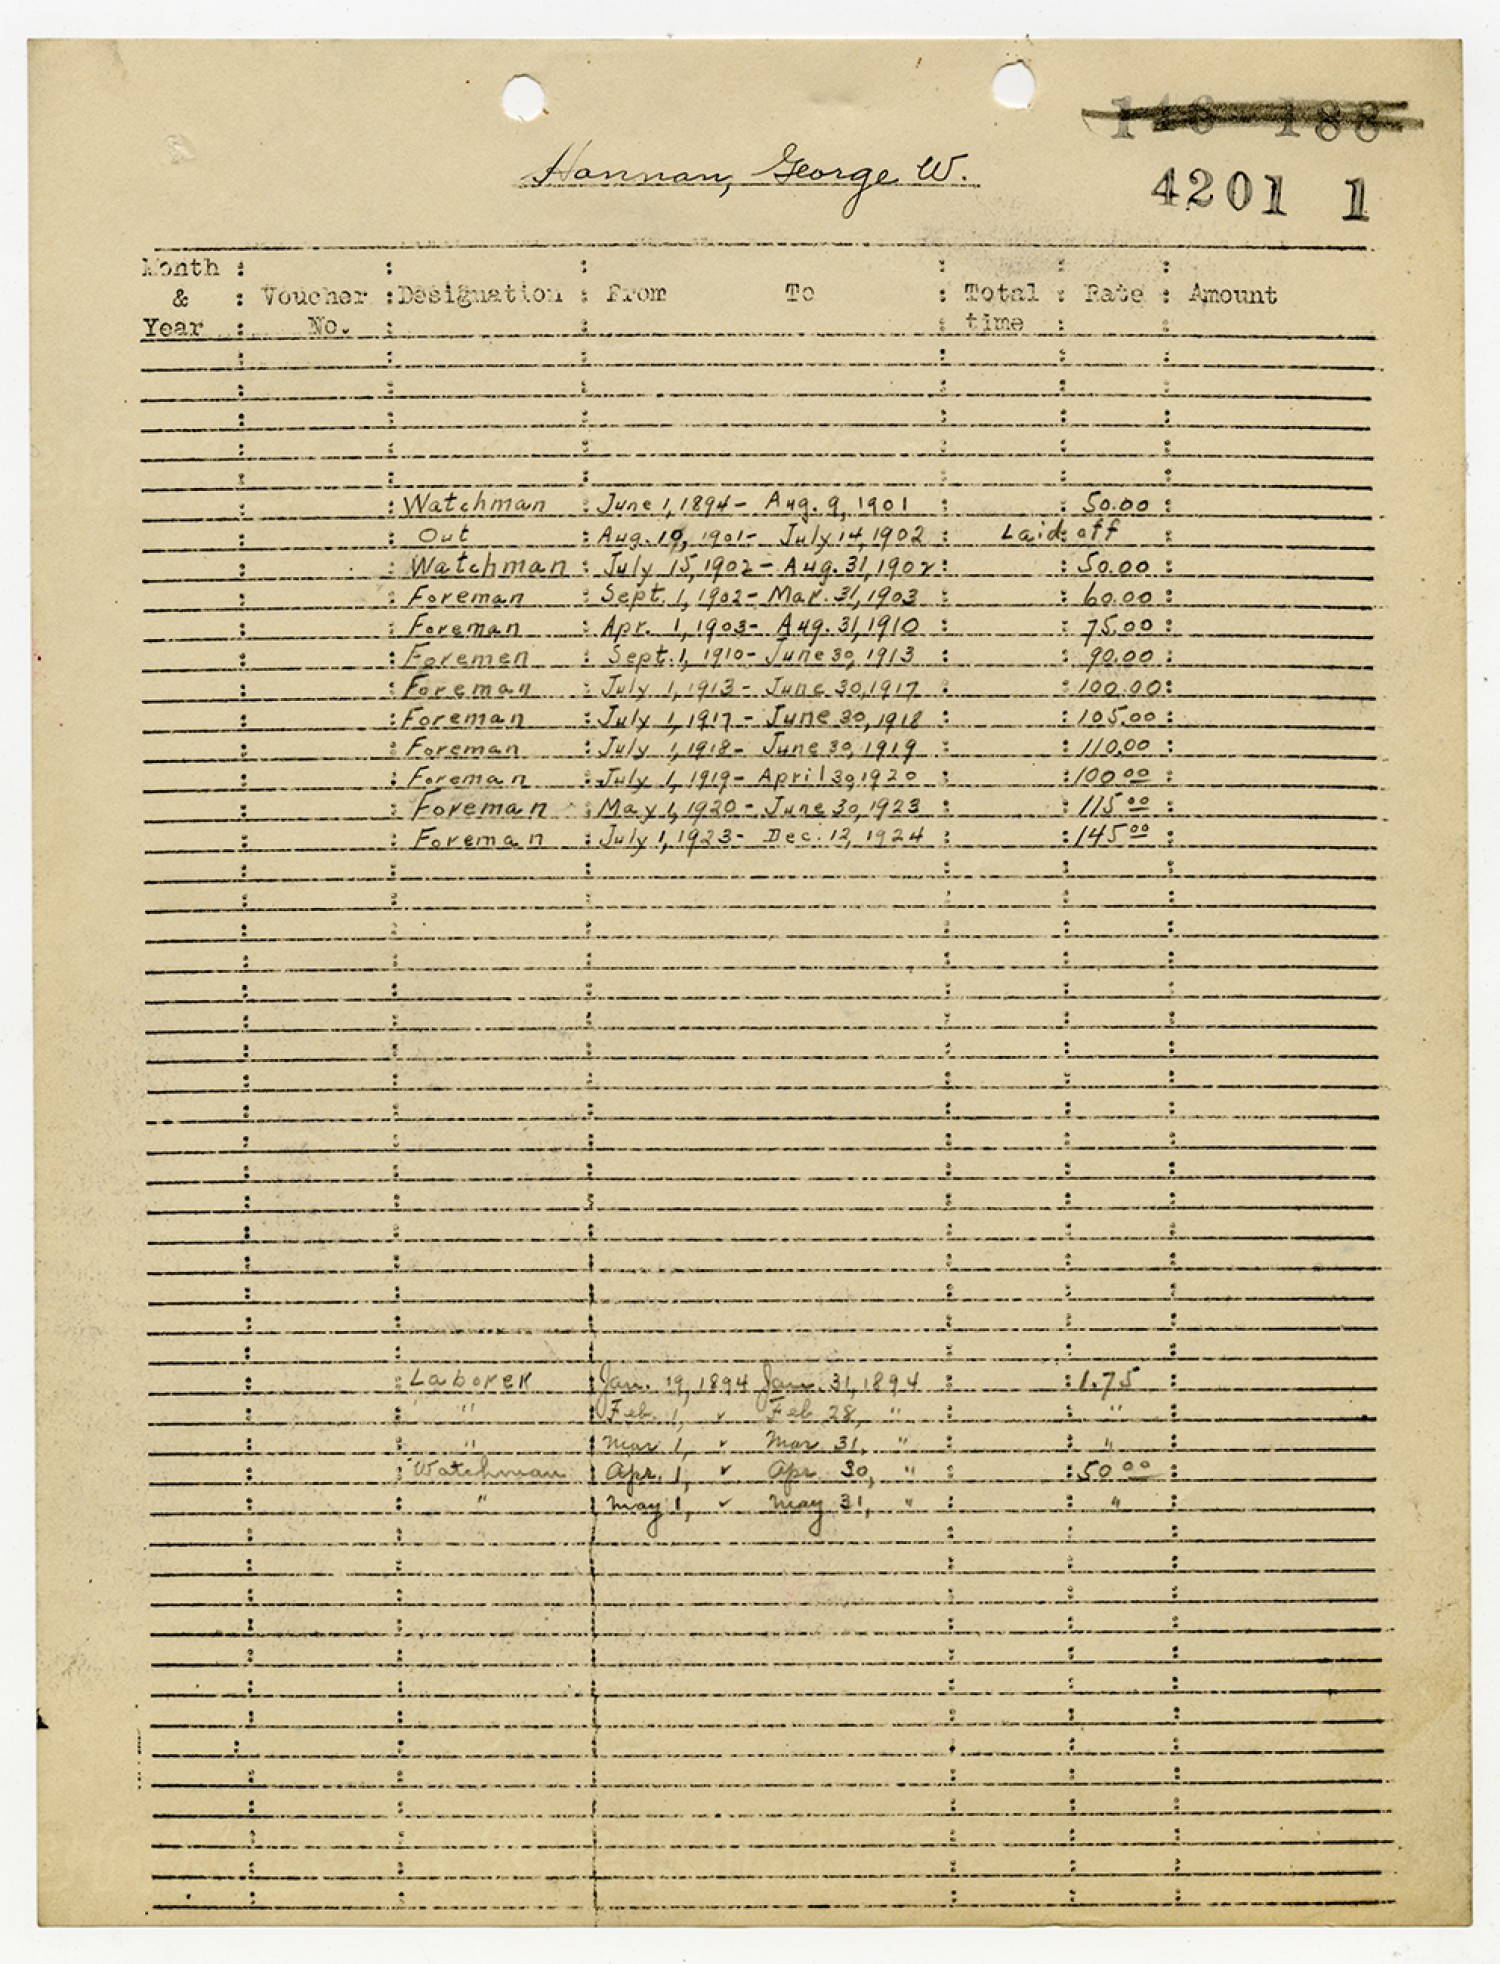 Hannan, George W.
4201 1
Month
& : Voucher : Designation : From To : Total : Rate : Amount
Year : No. : : : time : :
Watchman : June 1, 1894 - Aug. 9, 1901 : : 50.00 :
Out : Aug. 10, 1901 - July 14, 1902 : Laid off :
Watchman : July 15, 1902 - Aug. 31, 1902 : : 50.00 :
Foreman : Sept. 1, 1902 - Mar. 31, 1903 : : 60.00 :
Foreman : Apr. 1, 1903 - Aug. 31, 1910 : : 75.00 :
Foremen : Sept. 1, 1910 - June 30, 1913 : : 90.00 :
Foreman : July 1, 1913 - June 30, 1917 : : 100.00 :
Foreman : July 1, 1917 - June 30, 1918 : : 105.00 :
Foreman : July 1, 1918 - June 30, 1919 : : 110.00 :
Foreman : July 1, 1919 - April 30, 1920 : : 100.00 :
Foreman : May 1, 1920 - June 30, 1923 : : 115.00 :
Foreman : July 1, 1923 - Dec. 12, 1924 : : 145.00 :
Laborer : Jan. 19, 1894 Jan. 31, 1894 : : 1.75 :
" : Feb. 1, " Feb 28, " : : " :
" : Mar 1, " Mar 31, " : : " :
Watchman : Apr. 1, " Apr 30, " : : 50.00 :
" : May 1, " May 31, " : : " :